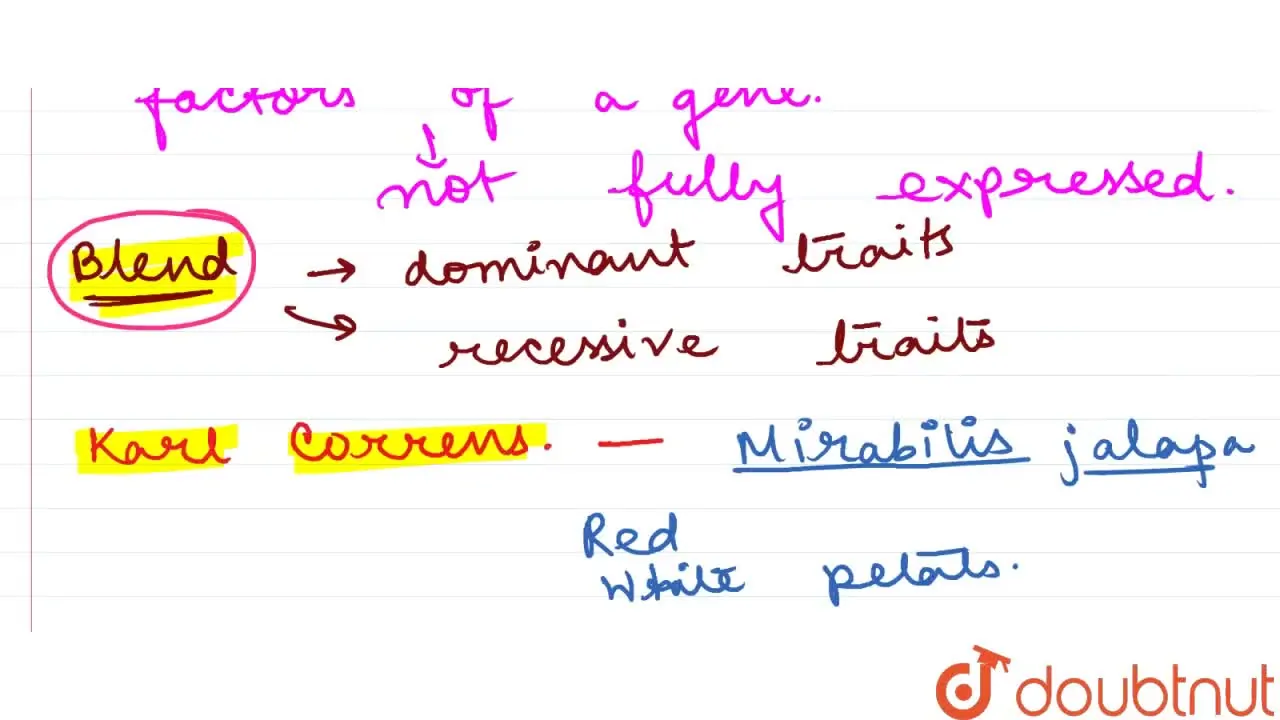 factors of a gene.
not fully expressed.
Blend → dominant traits
recessive traits
Karl Correns. — Mirabilis jalapa
Red
white petals.
doubtnut